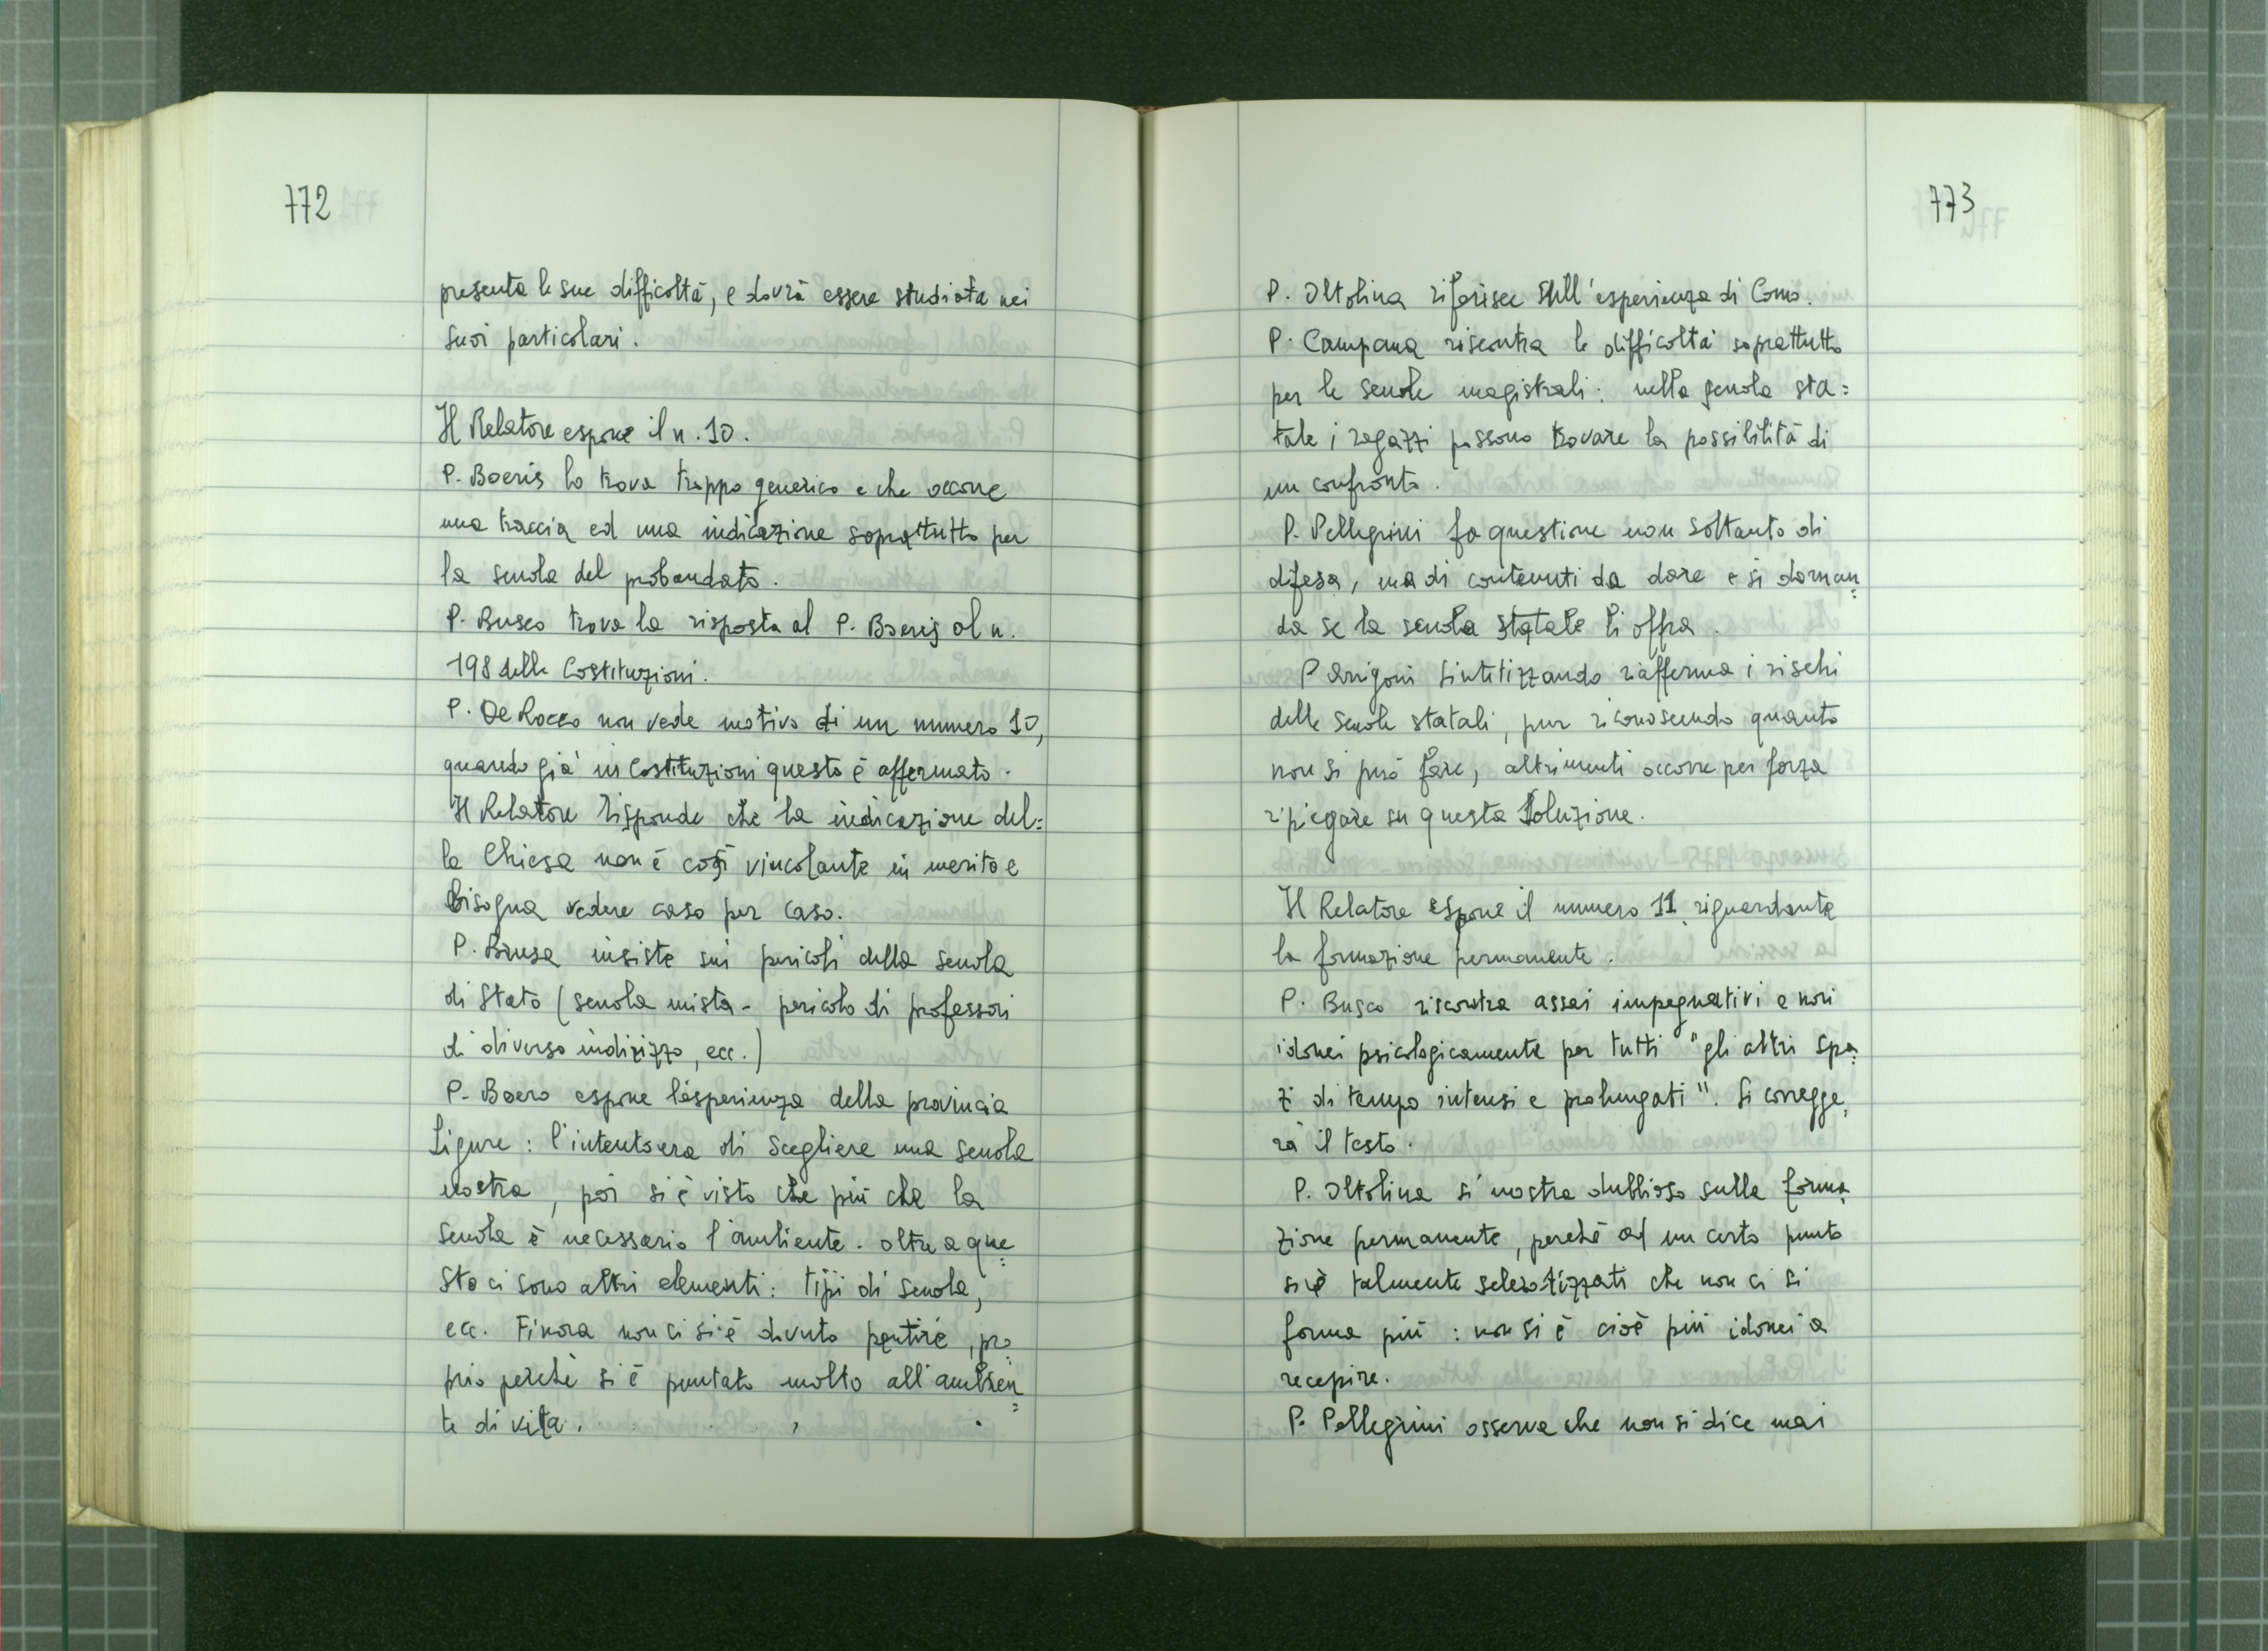 772
presenta le sue difficoltà, e dovrà essere studiata nei
suoi particolari.
Il Relatore espone il n. 10.
P. Boeris lo trova troppo generico e che occorre
una traccia ed una indicazione soprattutto per
la scuola del probandato.
P. Busco trova la risposta al P. Boeris al n.
198 delle Costituzioni.
P. De Rocco non vede motivo di un numero 10,
quando già in Costituzioni questo è affermato.
Il Relatore risponde che la indicazione del=
la Chiesa non è così vincolante in merito e
bisogna vedere caso per caso.
P. Brusa insiste sui pericoli della scuola
di Stato (scuola mista - pericolo di professori
di diverso indirizzo, ecc.)
P. Boero espone l'esperienza della provincia
Ligure: l'intento era di scegliere una scuola
nostra, poi si è visto che più che la
scuola è necessario l'ambiente. Oltre a que=
sto ci sono altri elementi: tipi di scuola,
ecc. Finora non ci si è dovuto pentire, pro=
prio perchè si è puntato molto all'ambien=
te di vita.
773
P. Oltolina riferisce sull'esperienza di Como.
P. Campana riscontra le difficoltà soprattutto
per le scuole magistrali: nella scuola sta=
tale i ragazzi possono trovare la possibilità di
un confronto.
P. Pellegrini fa questione non soltanto di
difesa, ma di contenuti da dare e si doman=
da se la scuola statale li offra.
P Arrigoni sintitizzando riafferma i rischi
delle scuole statali, pur riconoscendo quanto
non si può fare, altrimenti occorre per forza
ripiegare su questa soluzione.
Il Relatore espone il numero 11 riguardante
la formazione permanente.
P. Busco riscontra assai impegnativi e non
idonei psicologicamente per tutti "gli altri spa=
zi di tempo intensi e prolungati". Si corregge=
rà il testo.
P. Oltolina si mostra dubbioso sulla forma=
zione permanente, perchè ad un certo punto
si è talmente sclerotizzati che non ci si
forma più: non si è cioè più idonei a
recepire.
P. Pellegrini osserva che non si dice mai